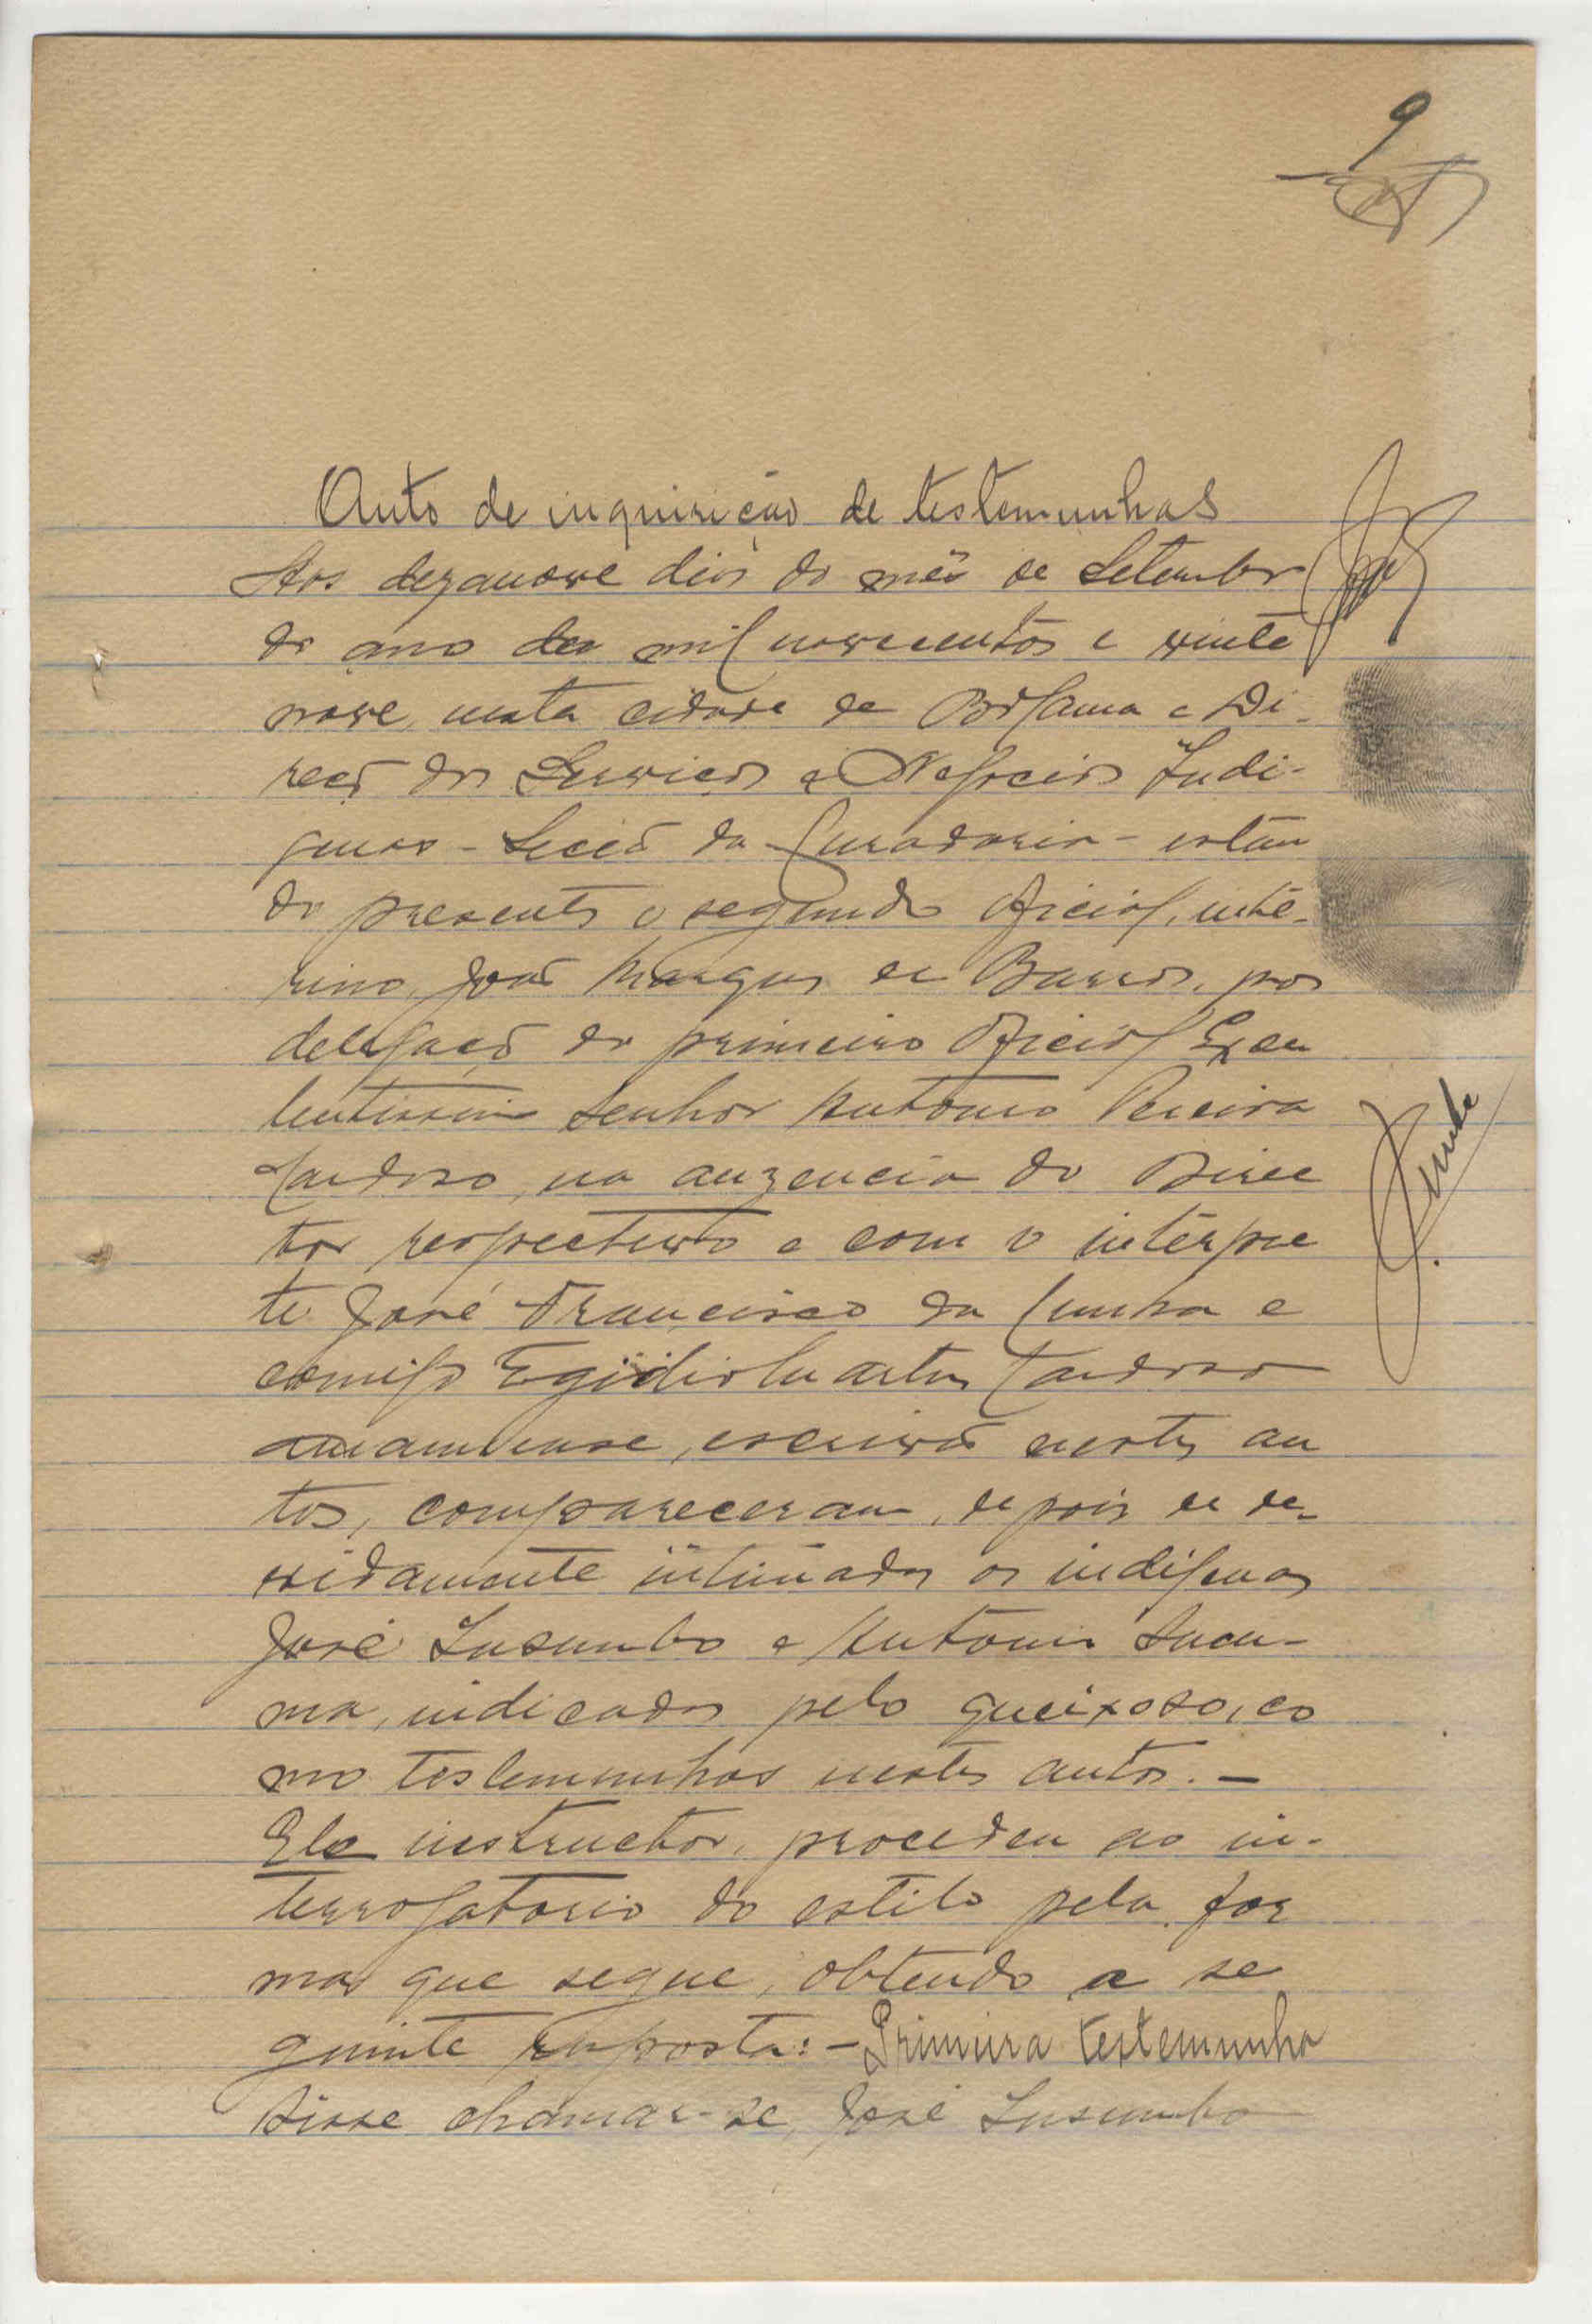 9
Auto de inquirição de testemunhas
Aos dezanove dias do mês de Setembro
do ano de mil novecentos e vinte
nove, nesta cidade de Bolama e Di-
recção dos Serviços e Negocios Indi-
genas - Secção da Curadoria - estan
do presente o segundo oficial, inté-
rino, João Marques de Barros, por
delegação do primeiro oficial Exce
lentissimo Senhor Antonio Pereira
Cardoso, na auzencia do Direc
tor respectivo e com o intérpre
te José Francisco da Cunha e
comigo Egidio Martins Cardoso
amanuense, escrivão nestes au
tos, compareceram, depois de de-
vidamente intimados os indigenas
José Lusumbo e Antonio
indicados pelo queixoso, co
mo testemunhas nestes autos. -
Ele instructor, procedeu ao in-
terrogatorio do estilo pela for
ma que segue, obtendo a se
guinte resposta: - Primeira testemunha
Disse chamar-se, José Lusumbo